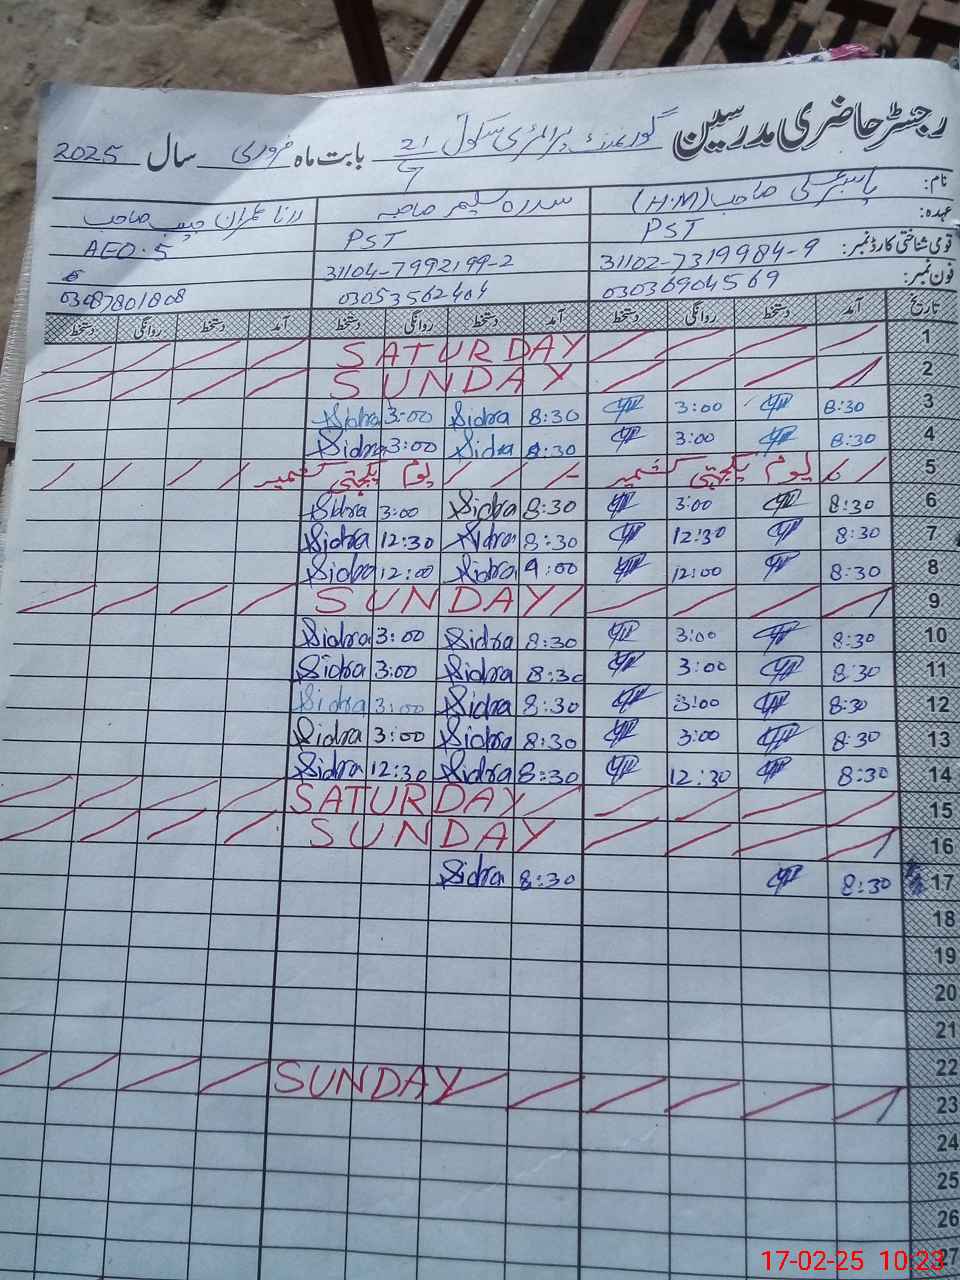 رجسٹر حاضری مدرسین گورنمنٹ پرائمری سکول 21 بابت ماہ فروری سال 2025
نام: یاسر علی صاحب (H.M) سدرہ سلیم صاحبہ رانا عمران حبیب صاحب
عہدہ: PST PST AEO.5
قومی شناختی کارڈ نمبر: 31102-7319984-9 31104-7992199-2
فون نمبر: 03036904569 03053562404 03087801808
تاریخ آمد دستخط روانگی دستخط آمد دستخط روانگی دستخط آمد دستخط روانگی دستخط
1 SATURDAY
2 SUNDAY
3 8:30 3:00 8:30 Sidra 3:00 Sidra
4 8:30 3:00 8:30 Sidra 3:00 Sidra
5 یوم یکجہتی کشمیر یوم یکجہتی کشمیر
6 8:30 3:00 8:30 Sidra 3:00 Sidra
7 8:30 12:30 8:30 Sidra 12:30 Sidra
8 8:30 12:00 9:00 Sidra 12:00 Sidra
9 SUNDAY
10 8:30 3:00 8:30 Sidra 3:00 Sidra
11 8:30 3:00 8:30 Sidra 3:00 Sidra
12 8:30 3:00 8:30 Sidra 3:00 Sidra
13 8:30 3:00 8:30 Sidra 3:00 Sidra
14 8:30 12:30 8:30 Sidra 12:30 Sidra
15 SATURDAY
16 SUNDAY
17 8:30 8:30 Sidra
18
19
20
21
22
23 SUNDAY
24
25
26
27
17-02-25 10:23